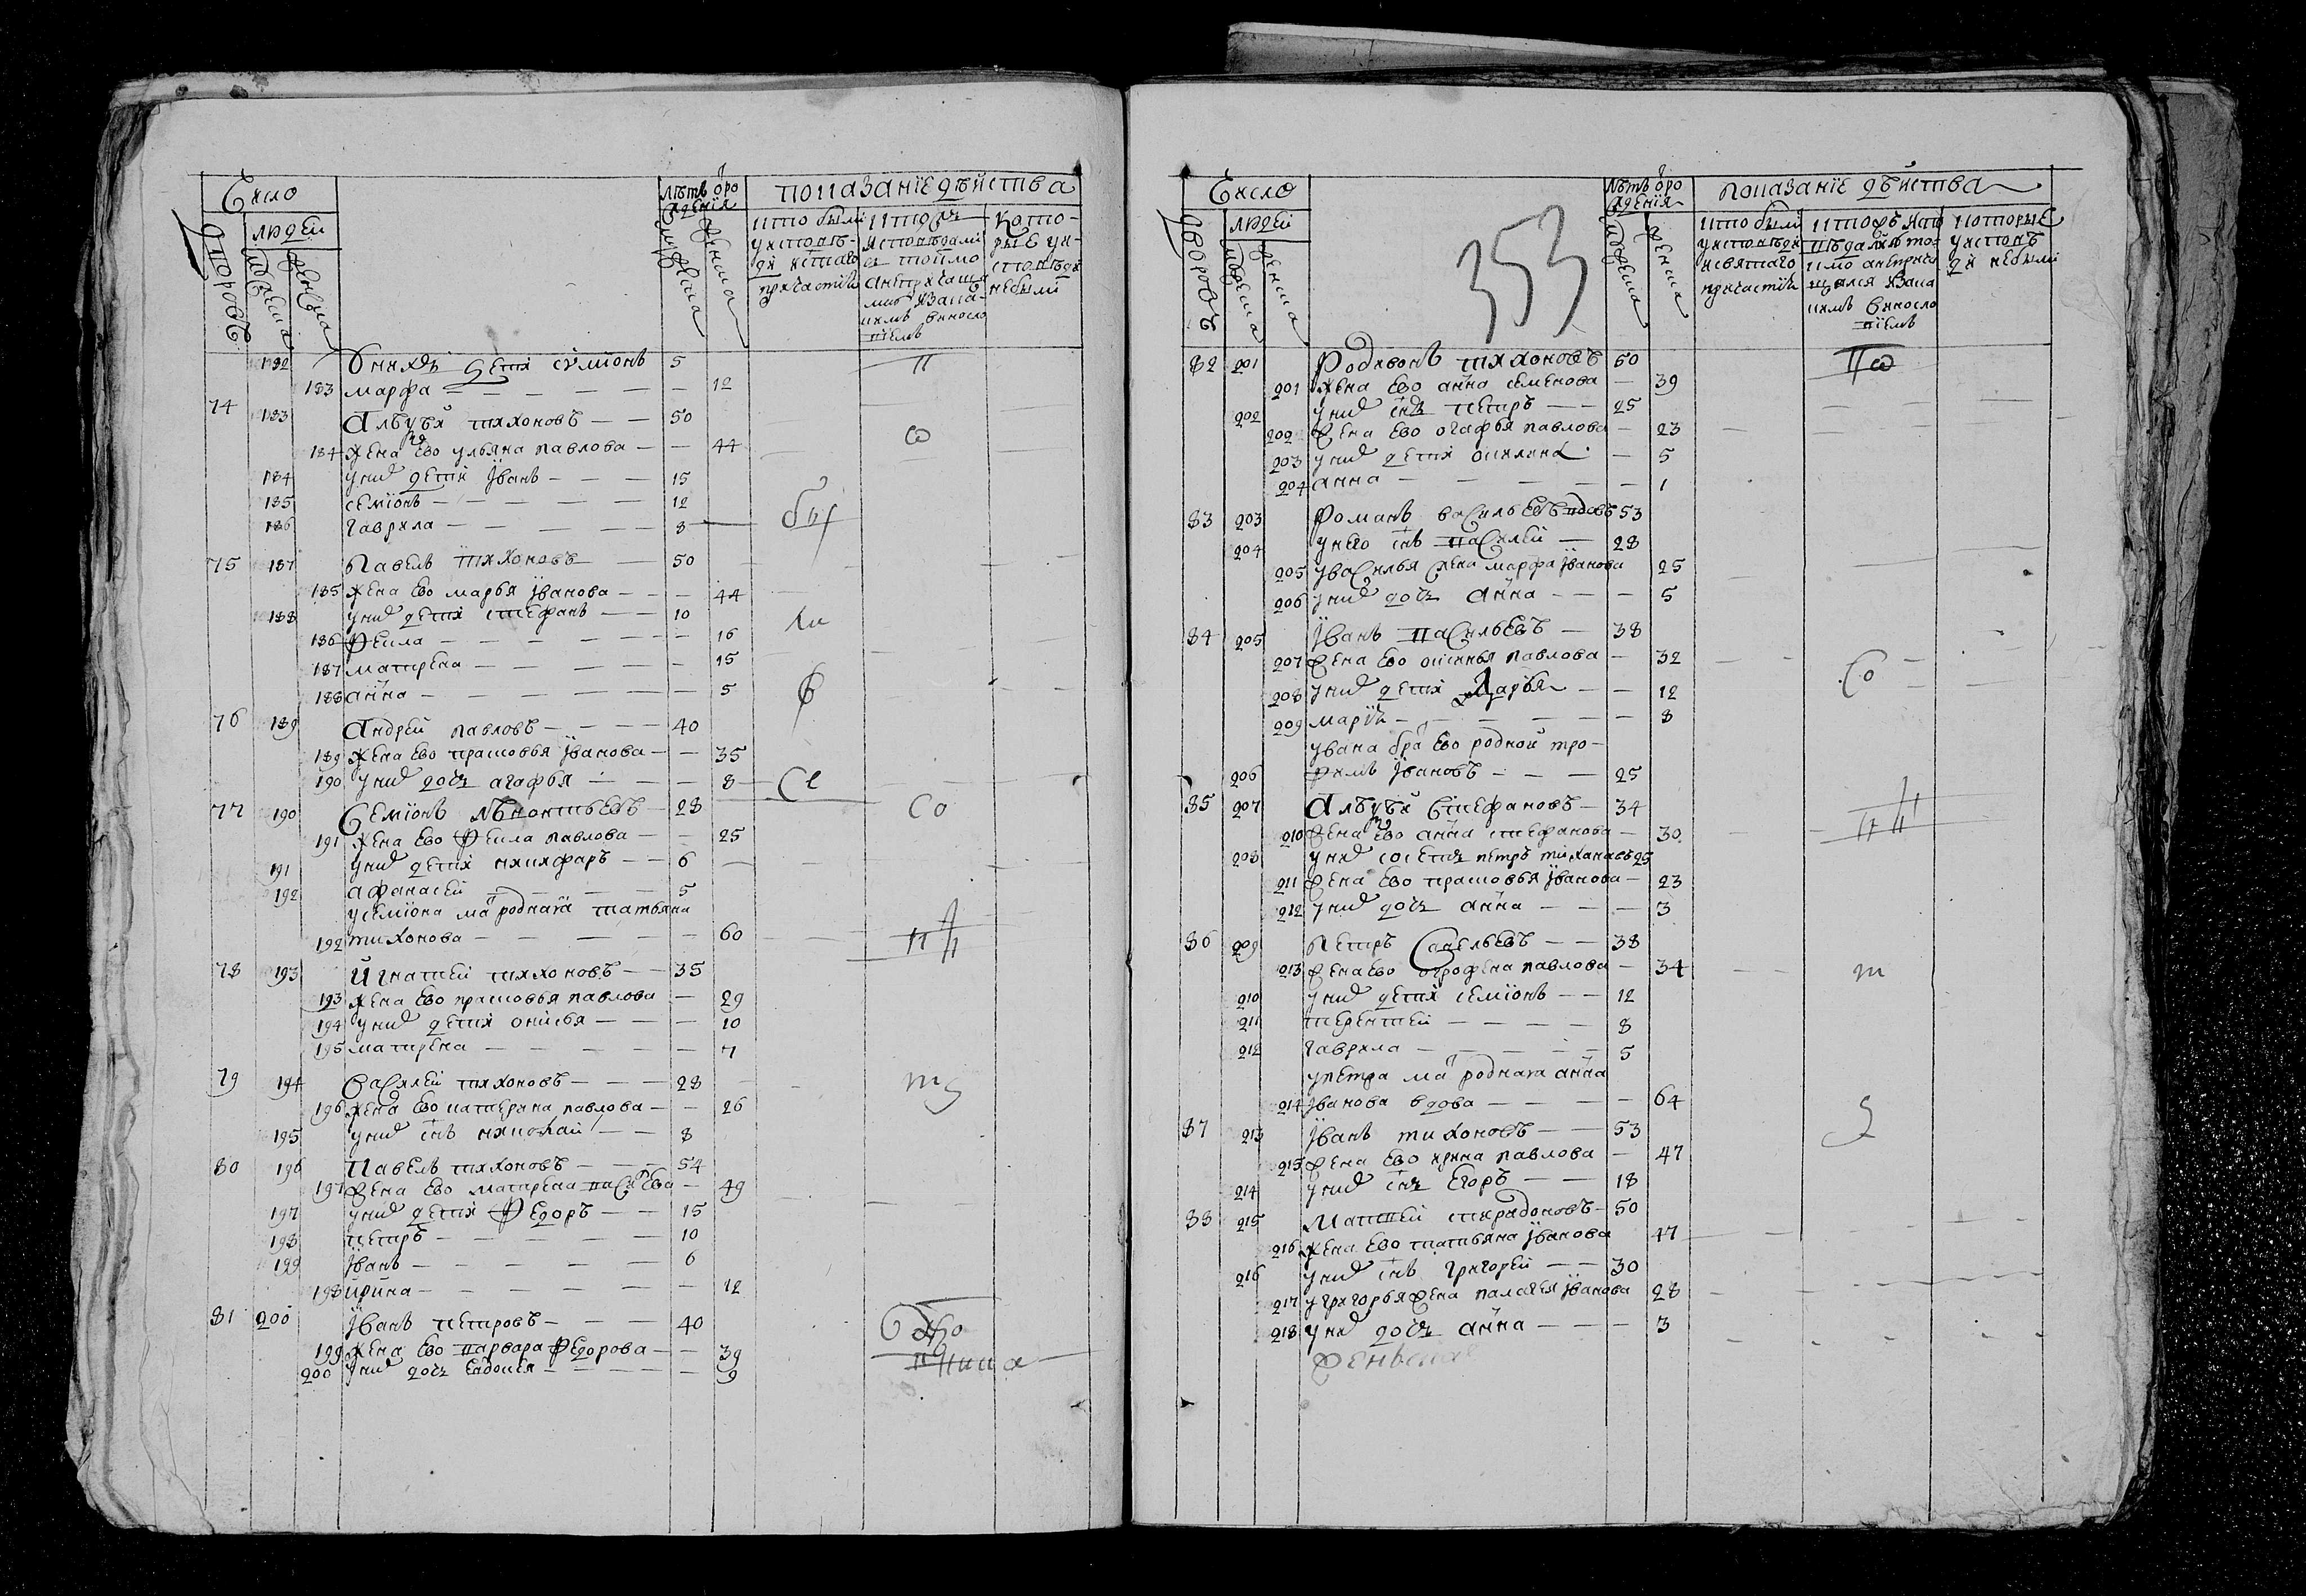 Число
людей
дворовъ
мужеска
женска
лѣтъ от ро
ждения
мужеска
женска
показание дѣйства
кто были
у исповѣ-
ди и стаго
причастия
исповѣдали
а не прича
винословиемъ
кото-
рые у и-
споведи
небыли
182 У них дети симионъ 5
183 марфа — 12
74 183 Алѣѯѣй тихоновъ — 50
184 жена ево ульяна павлова — 44
184 у них дети иванъ — 15
185 семионъ — 12
186 гаврила — 8
75 187 Павелъ тихоновъ — 50
185 жена ево марья иванова — 44
188 у них дети стефанъ — 10
186 Фекла — 16
187 матрена — 15
188 анна — 5
76 189 Андрей павловъ — 40
189 жена ево прасковья иванова — 35
190 у них дочь агафья — 8
77 190 Семионъ леонтьевъ 28
191 жена ево Фекла павлова — 25
191 у них дети никифаръ — 6
192 афанасей — 5
у семиона мать родная татьяна
192 тихонова — 60
78 193 Игнатей тихоновъ — 35
193 жена ево прасковья павлова — 29
194 у них дети онисья — 10
195 матрена — 7
79 194 Василей тихоновъ — 28
196 жена ево катерина павлова — 26
195 у них снъ николай — 8
80 196 Павелъ тихоновъ — 54
197 жена ево матрена васильева — 49
197 у них дети Федоръ — 15
198 петръ — 10
199 иванъ — 6
198 ирина — 12
81 200 иванъ петровъ — 40
199 жена ево варвара Федорова — 39
200 у них дочь евдокея — 9
Число
353
людей
дворовъ
мужеска
женска
лѣтъ от ро
ждения
мужеска
женска
показание дѣйства
кто были
у исповѣди
и святаго
причастия
кто исповѣдался то-
кмо а не прича
щался и за ка
кимъ винослo
виемъ
которые
у исповѣ
ди небыли
82 201 Родивонъ тихоновъ 50
201 жена ево анна семенова — 39
202 у них снъ петръ — 25
202 жена ево огафья павлова — 23
203 у них дети — 5
204 анна — 1
83 203 Романъ васильевъ вдовъ 53
204 у него снъ василей — 28
205 у василья жена марфа иванова 25
206 у них дочь анна — 5
84 205 иванъ васильевъ — 38
207 жена ево оксинья павлова — 32
208 у них дети дарья — 12
209 мария — 8
у ивана бра ево родной тро-
206 фимъ ивановъ — 25
85 207 Алѣѯѣй стефановъ — 34
210 жена ево анна стефанова — 30
208 у них соседъ петръ тихановъ 25
211 жена ево прасковья иванова — 23
212 у них дочь анна — 3
86 209 Петръ савельевъ — 38
213 жена ево огрофена павлова — 34
210 у них дети семионъ — 12
211 терентей — 8
212 гаврила — 5
у петра ма родная анна
214 иванова вдова — 64
87 213 иванъ тихоновъ — 53
215 жена ево ирина павлова — 47
214 у них снъ егоръ — 18
88 215 Матвей спиридоновъ — 50
216 жена ево татьяна иванова 47
216 у них снъ григорей — 30
217 у григорья жена палагея иванова 28
218 у них дочь анна — 3